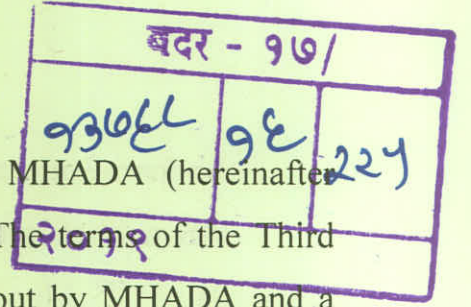 बदर - १७/
१३७६८ १६ २२५
MHADA (hereinafter
२०१२
The terms of the Third
out by MHADA and a